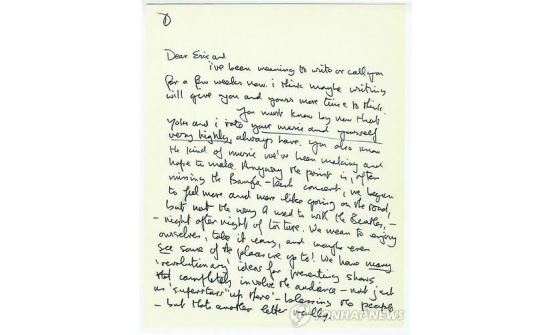 ①
Dear Eric and
i've been meaning to write or call you
for a few weeks now. i think maybe writing
will give you and yours more time to think.
You must know by now that
Yoko and i rate your music and yourself
very highly, always have. You also know
the kind of music we've been making and
hope to make. Anyway the point is, after
missing the Bangla-Desh concert, we began
to feel more and more like going on the road,
but not the way I used to with the Beatles,-
- night after night of torture. We mean to enjoy
ourselves, take it easy, and maybe even
see some of the places we go to! We have many
'revolutionary' ideas for presenting shows
that completely involve the audience - not just
as 'superstars' 'up there' - blessing the people
- but thats another letter really.
YONHAPNEWS